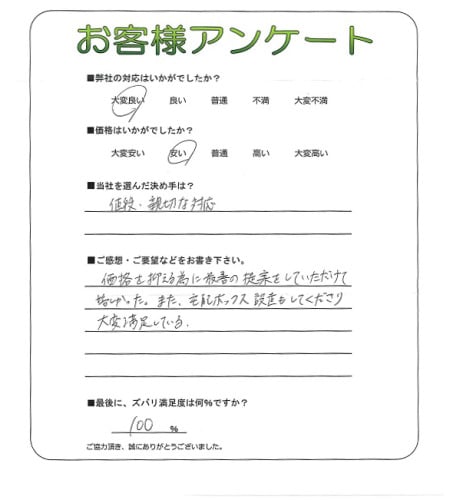 お客様アンケート
■弊社の対応はいかがでしたか？
大変良い 良い 普通 不満 大変不満
■価格はいかがでしたか？
大変安い 安い 普通 高い 大変高い
■当社を選んだ決め手は？
値段・親切な対応
■ご感想・ご要望などをお書き下さい。
価格を抑える為に最善の提案をしていただけて
嬉しかった。また、宅配ボックス設置もしてくださり
大変満足している。
■最後に、ズバリ満足度は何%ですか？
100 %
ご協力頂き、誠にありがとうございました。